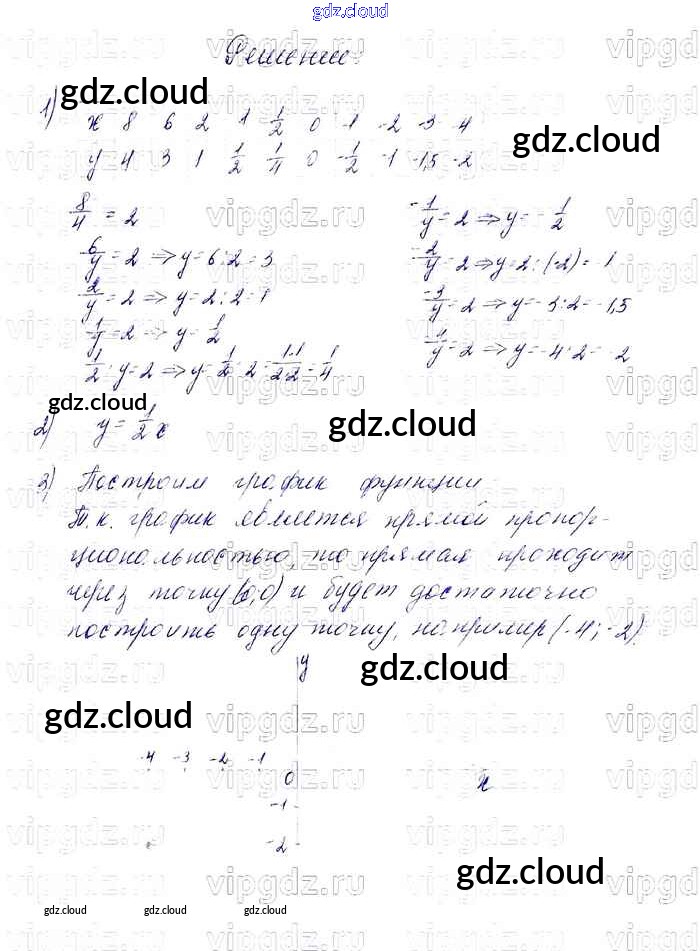 gdz.cloud
Решение:
gdz.cloud
1) x 8 6 2 1 1/2 0 -1 -2 -3 -4
gdz.cloud
y 4 3 1 1/2 1/4 0 -1/2 -1 -1,5 -2
8/4 = 2
6/y = 2 ⇒ y = 6:2 = 3
2/y = 2 ⇒ y = 2:2 = 1
1/y = 2 ⇒ y = 1/2
1/2 : y = 2 ⇒ y = 1/2 : 2 = 1·1/2·2 = 1/4
-1/y = 2 ⇒ y = -1/2
-2/y = 2 ⇒ y = 2:(-2) = -1
-3/y = 2 ⇒ y = -3:2 = -1,5
-4/y = 2 ⇒ y = -4:2 = -2
gdz.cloud
2) y = 1/2 x
gdz.cloud
3) Построим график функции.
Т.к. график является прямой пропор-
циональностью, то прямая проходит
через точку (0,0) и будет достаточно
построить одну точку, например (-4;-2).
y
gdz.cloud
gdz.cloud
-4 -3 -2 -1
0
x
-1
-2
gdz.cloud
gdz.cloud gdz.cloud gdz.cloud